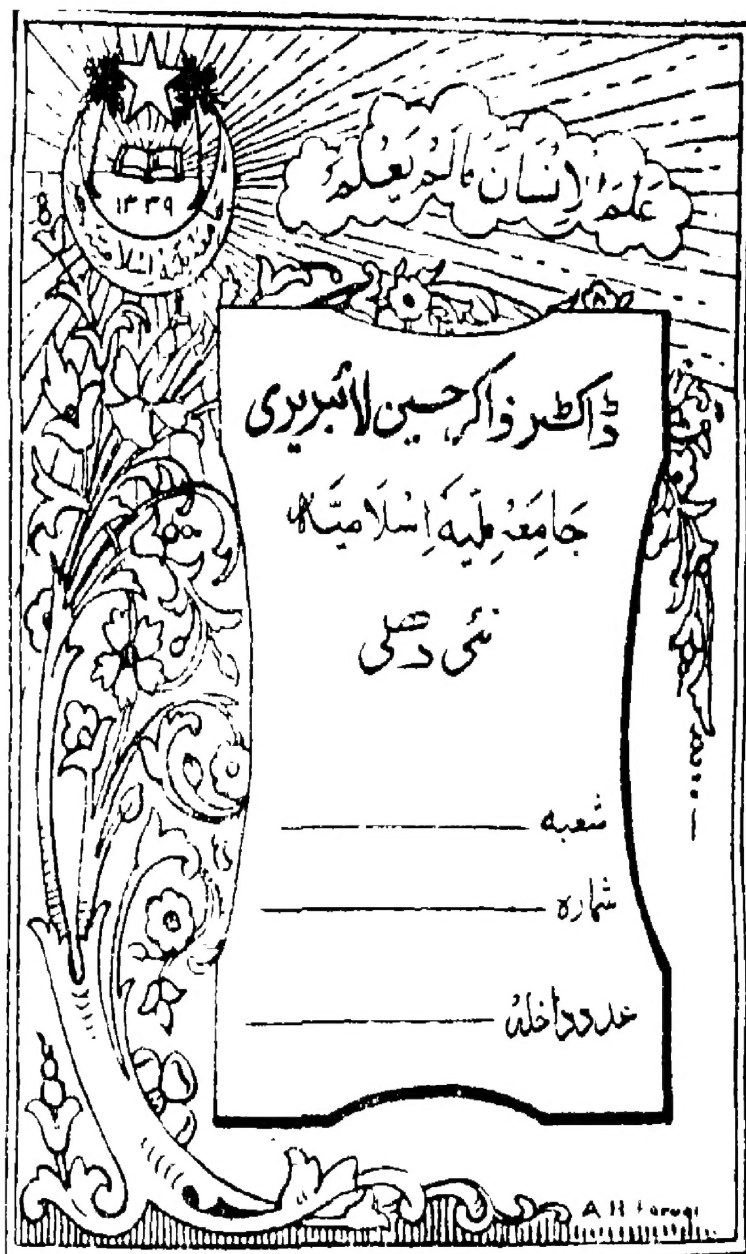 عَلَّمَ الْاِنْسَانَ مَالَمْ يَعْلَمْ
۱۳۳۹
ڈاکٹر ذاکر حسین لائبریری
جَامِعَہ مِلّیہ اِسْلَامیَّہ
نئی دھلی
شعبہ
شمارہ
عدد داخلہ